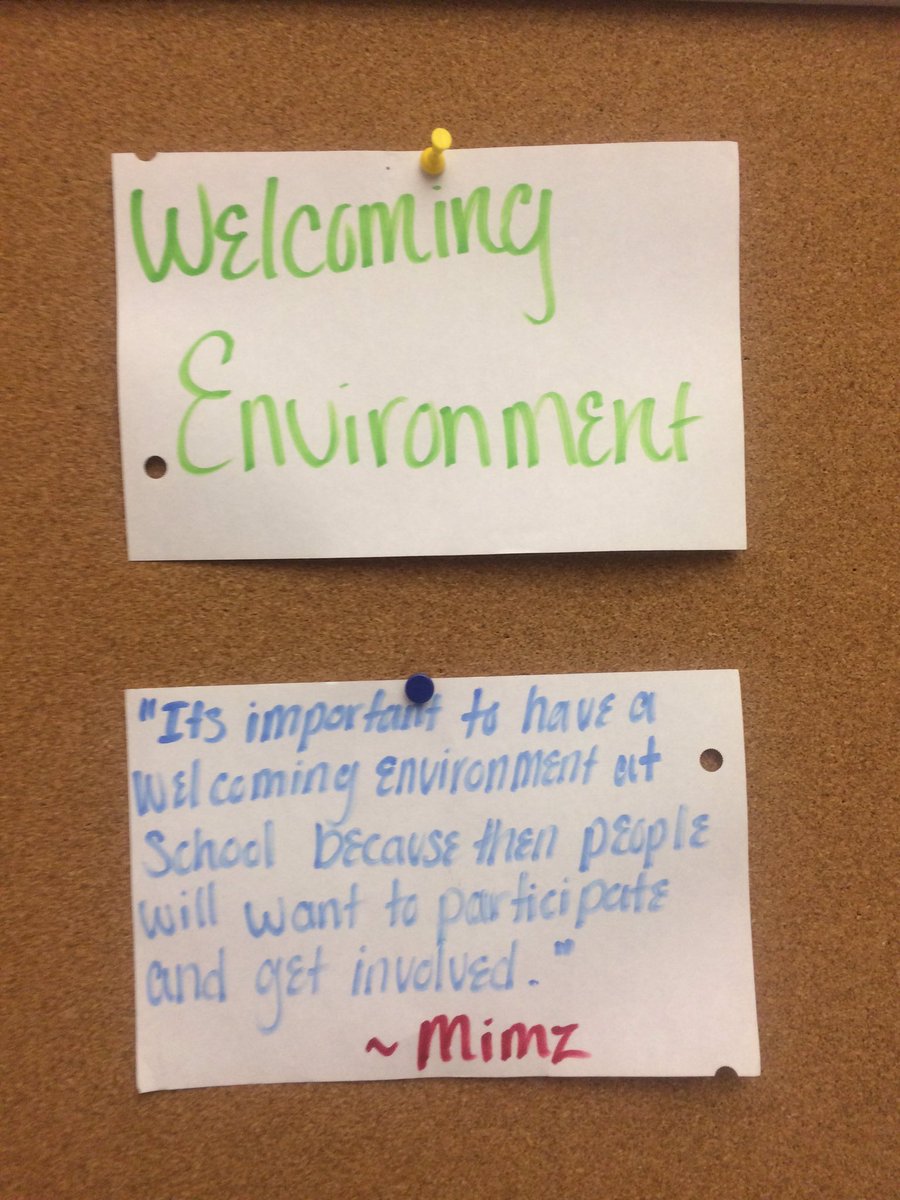 Welcoming
Environment
"Its important to have a
welcoming environment at
School because then people
will want to participate
and get involved."
~ Mimz